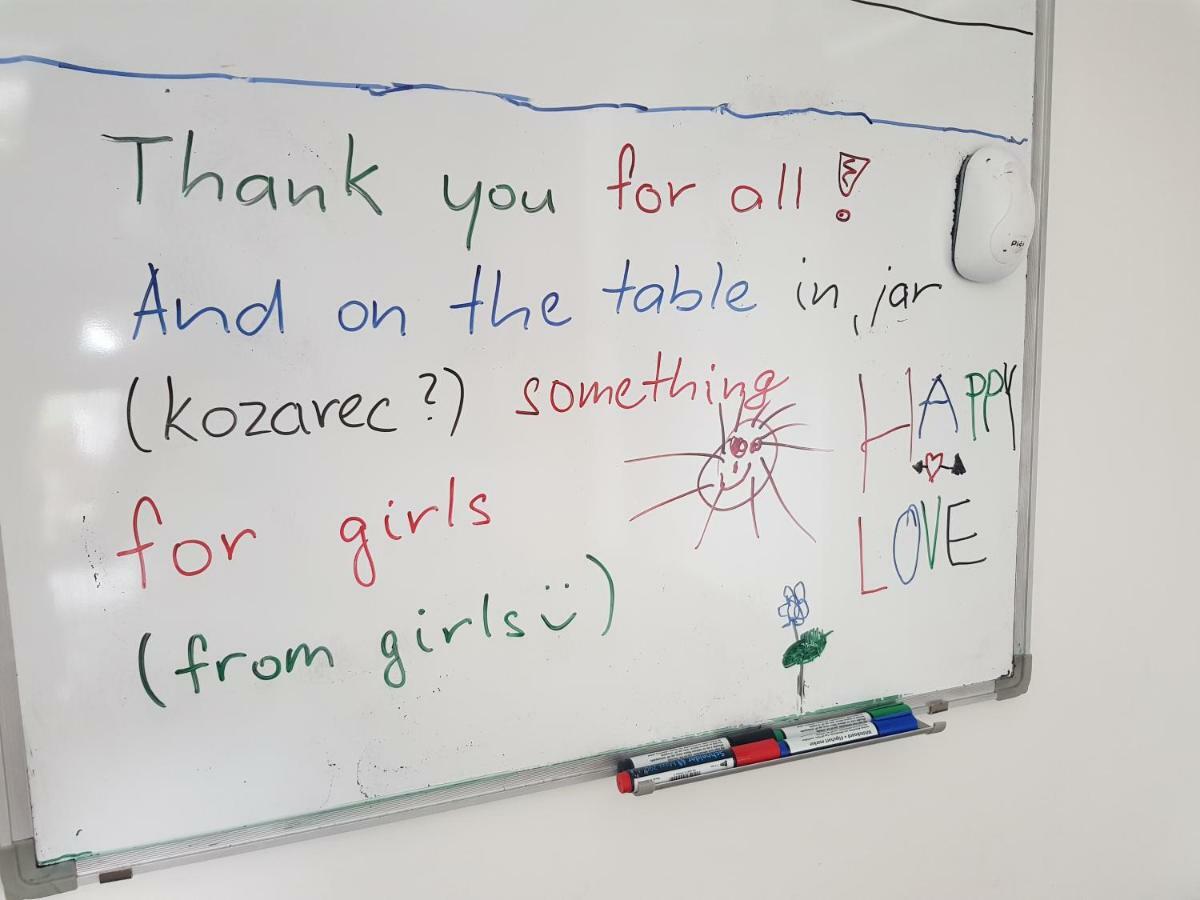 Thank you for all!
And on the table in jar
(kozarec?) something
for girls
(from girls ü)
HAPPY
LOVE